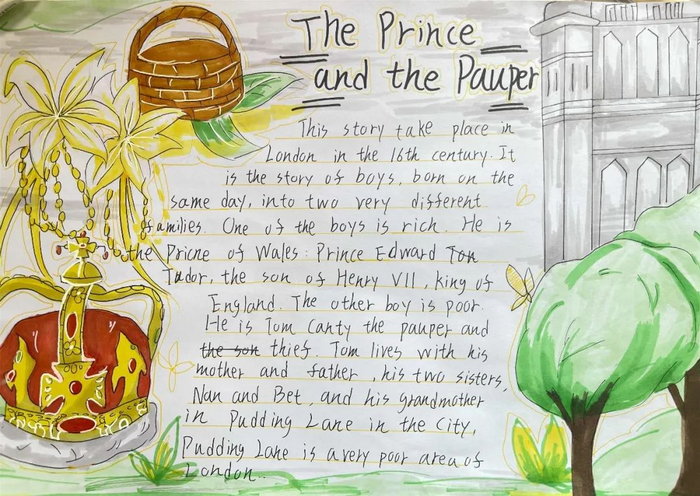 The Prince
and the Pauper
This story take place in
London in the 16th century. It
is the story of boys, born on the
same day, into two very different
families. One of the boys is rich. He is
the Pricne of Wales: Prince Edward Ton
Tudor, the son of Henry VII, king of
England. The other boy is poor.
He is Tom Canty the pauper and
the son thief. Tom lives with his
mother and father, his two sisters,
Nan and Bet, and his grandmother
in Pudding Lane in the City,
Pudding Lane is a very poor area of
London..